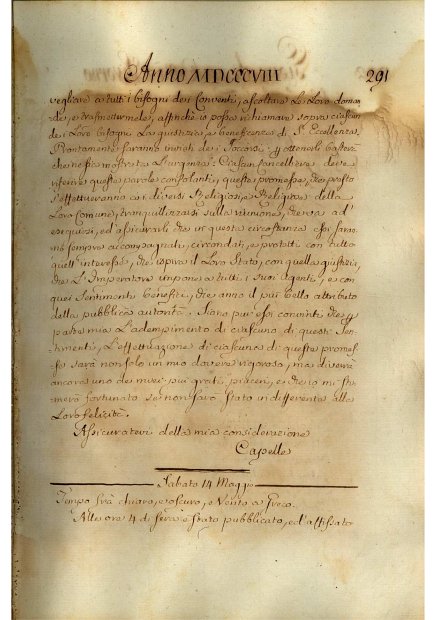 Anno MDCCCVIII 291
vegliare a tutti i bisogni dei Conventi, ascoltare le Loro doman
de, e trasmettermele, affinchè io possa richiamare sopra ciascun
de i Loro bisogni La giustizia, e beneficenza di S. Eccellenza.
Prontamente saranno inviati de i soccorsi, per ottenerli basterà
che ne sia mostrata L'urgenza: Ciascun Cancelliere deve
riferire queste parole consolanti, queste promesse, che presto
s'effettueranno ai diversi Religiosi, e Religiose della
Loro Comune, tranquillizzarsi sulla riunione, che va ad
eseguirsi, ed assicurarli che in questa circostanza essi saran
nò sempre accompagnati, circondati, e protetti con tutto
quell'interesse, che ispira il Loro Stato, con quella giustizia,
che L'Imperatore impone a tutti i suoi Agenti, e con
quei sentimenti benefici, che anno il più bello attributo
della pubblica autorità. Siano pur essi convinti, che per
parte mia L'adempimento di ciascuno di questi sen-
timenti, L'effettuazione di ciascuna di queste promes-
se sarà non solo un mio dovere rigoroso, ma diverrà
ancora uno dei miei più grati piaceri, e che io mi sti-
merò fortunato se non sarò stato indifferente alla
Loro felicità.
Assicuratevi della mia considerazione
Capelle
Sabato 14 Maggio
Tempo frà chiaro, e oscuro, e Vento a Greco.
Alle ore 4 di sera è stato pubblicato, ed affissato